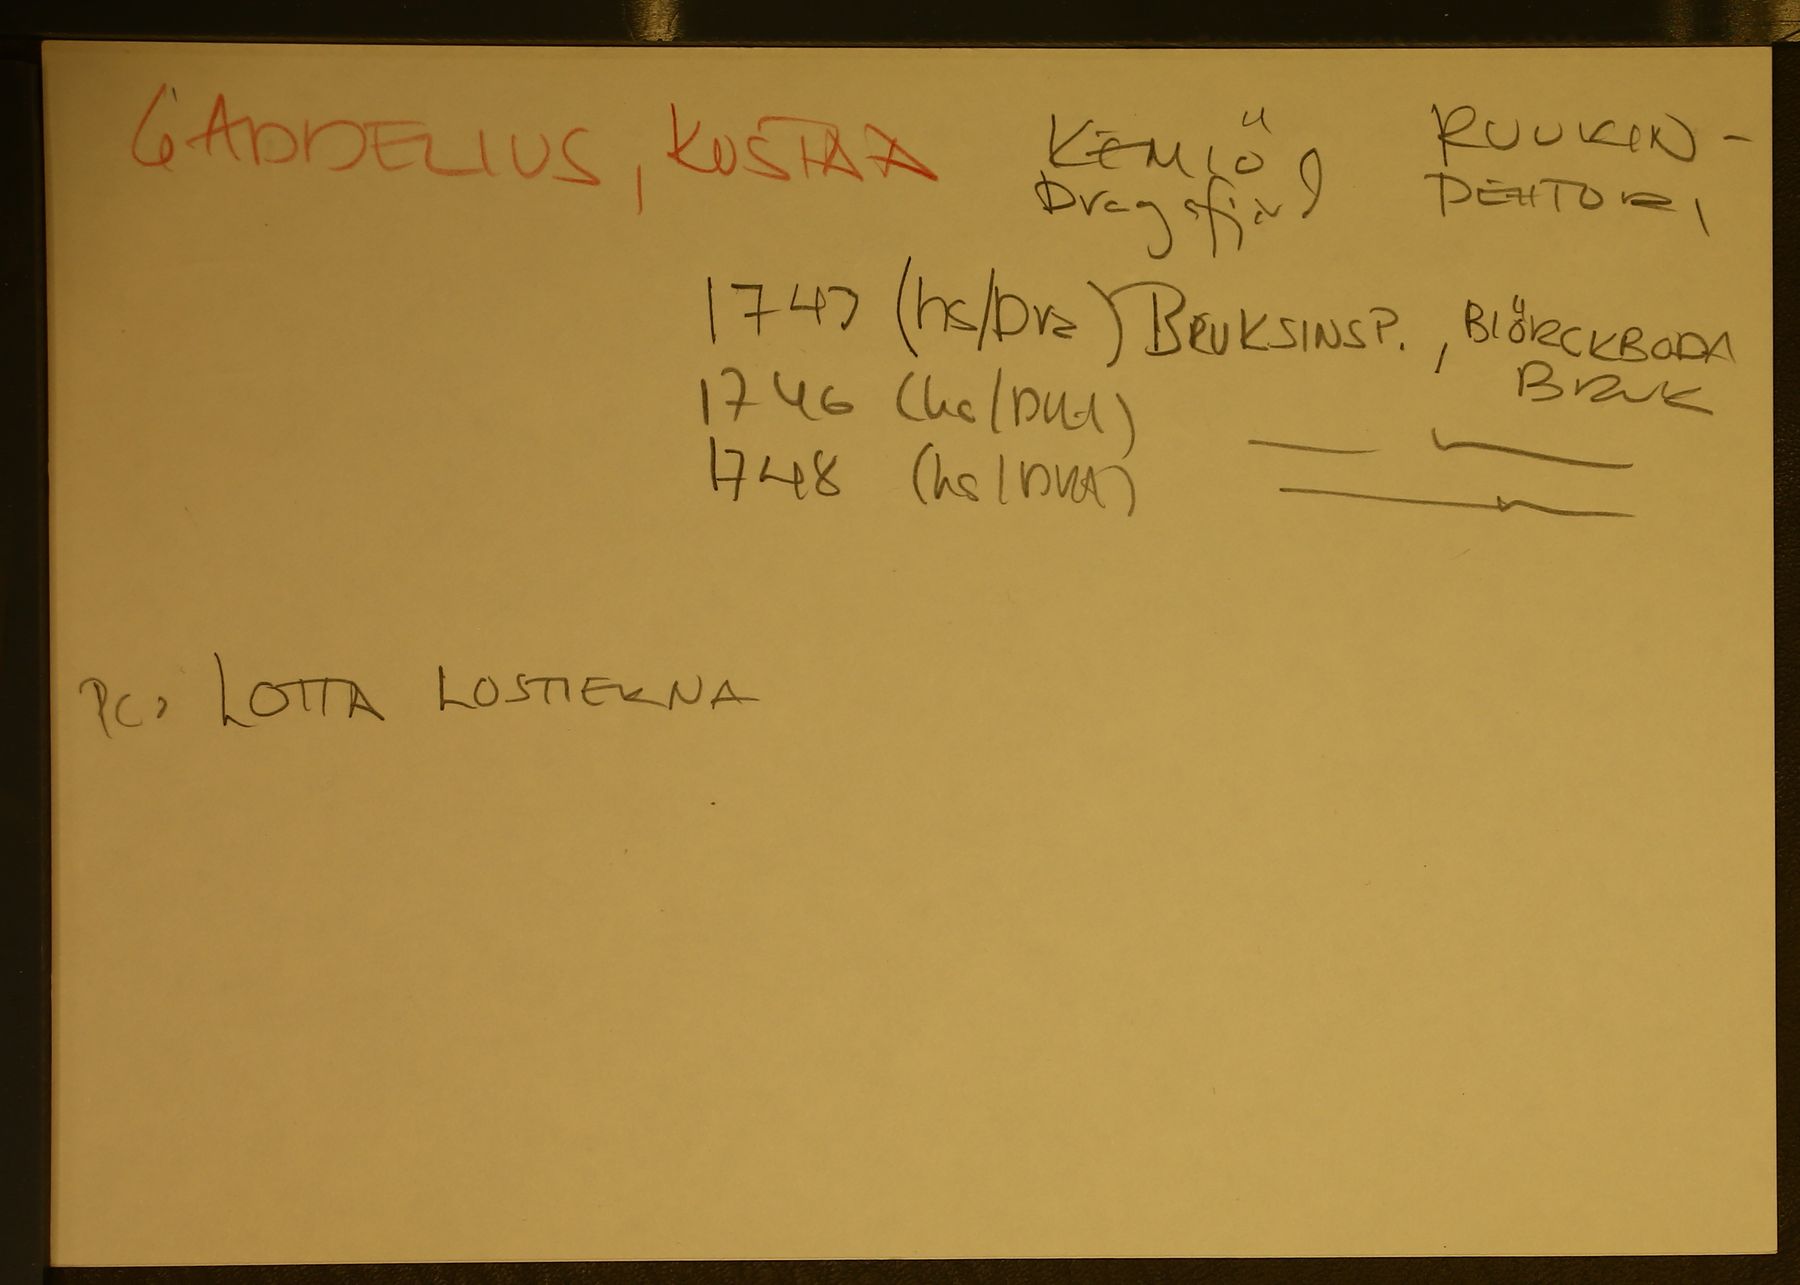 GADDELIUS, KUSTAA KEMIÖ RUUKIN-
Dragsfjärd DEHTORI
1747 (hs/DRA) BRUKSINSP., BIÖRCKBODA
BRUK
1746 (hs/DRA) — —
1748 (hs/DRA) —
PC, LOTTA LOSTIERNA